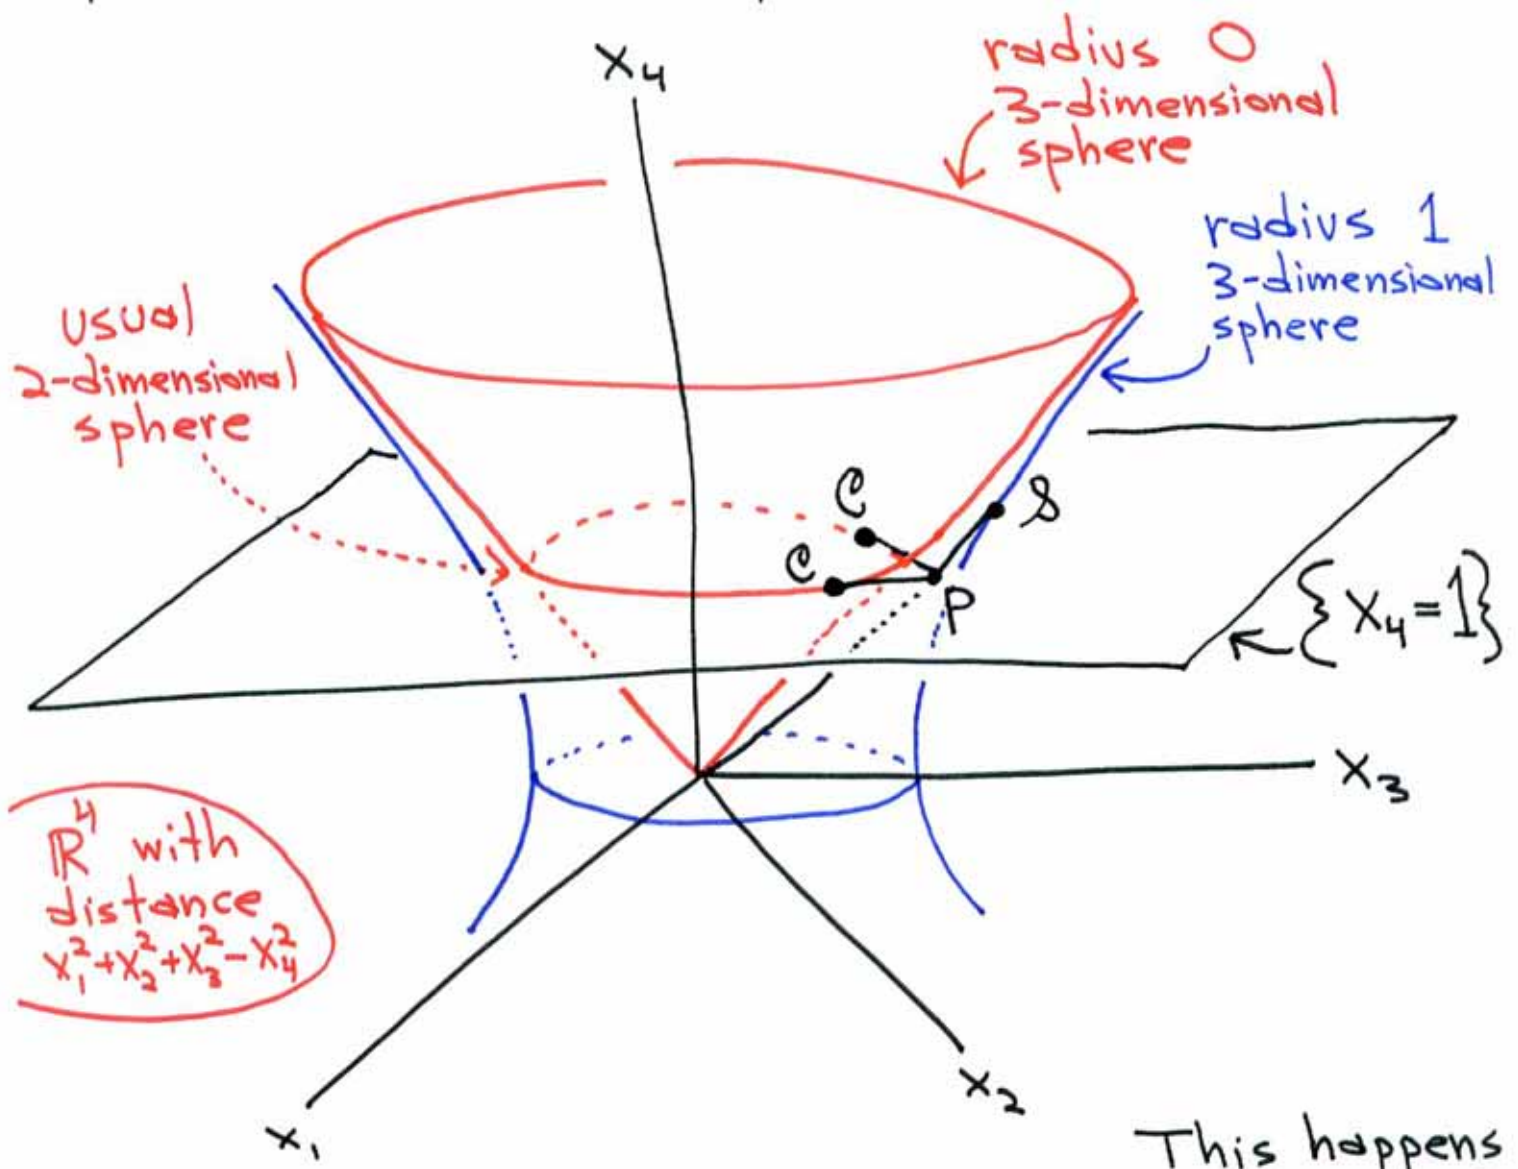 X₄
radius 0
3-dimensional
sphere
radius 1
3-dimensional
sphere
usual
2-dimensional
sphere
C
C
S
P
{X₄=1}
X₃
ℝ⁴ with
distance
X₁²+X₂²+X₃²-X₄²
X₁
X₂
This happens